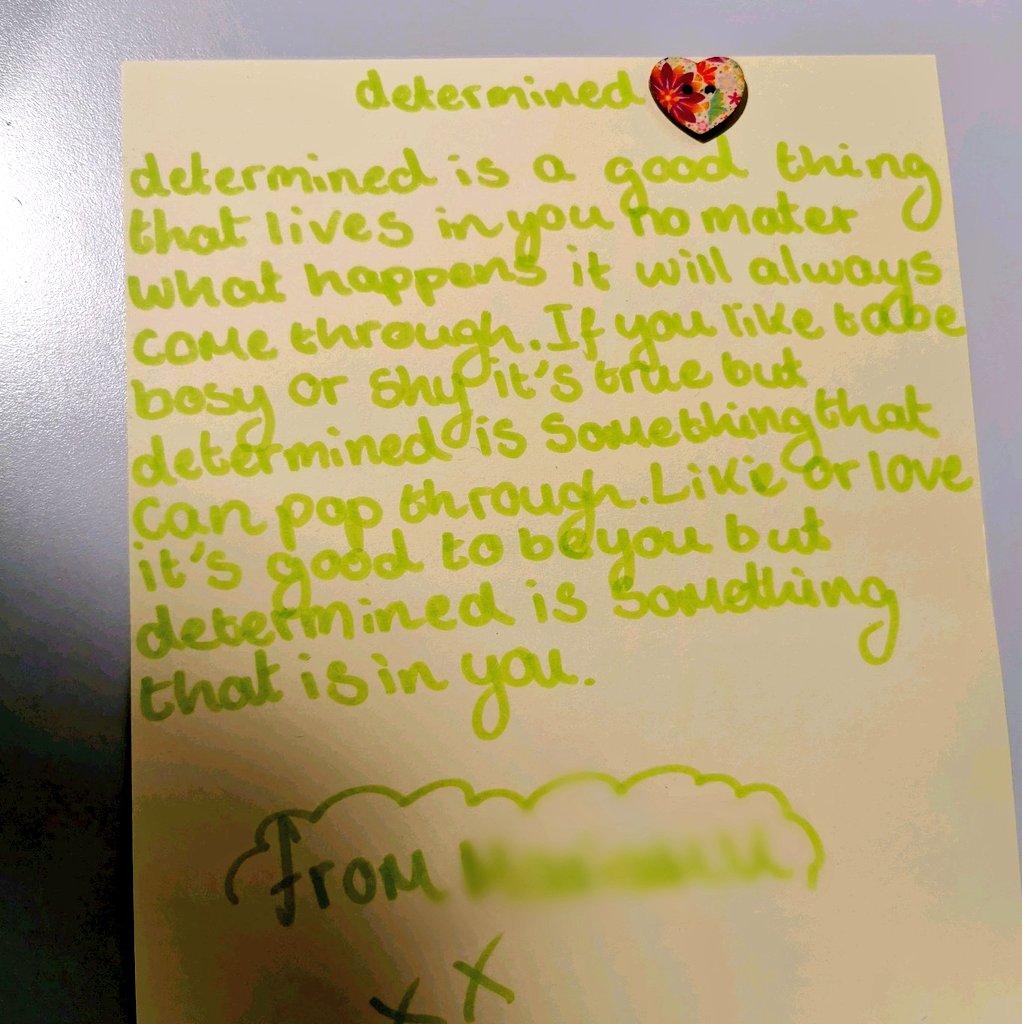 determined
determined is a good thing
that lives in you no mater
what happens it will always
come through. If you like to be
bosy or shy it's true but
determined is something that
can pop through. Likie or love
it's good to be you but
determined is something
that is in you.
from
x x